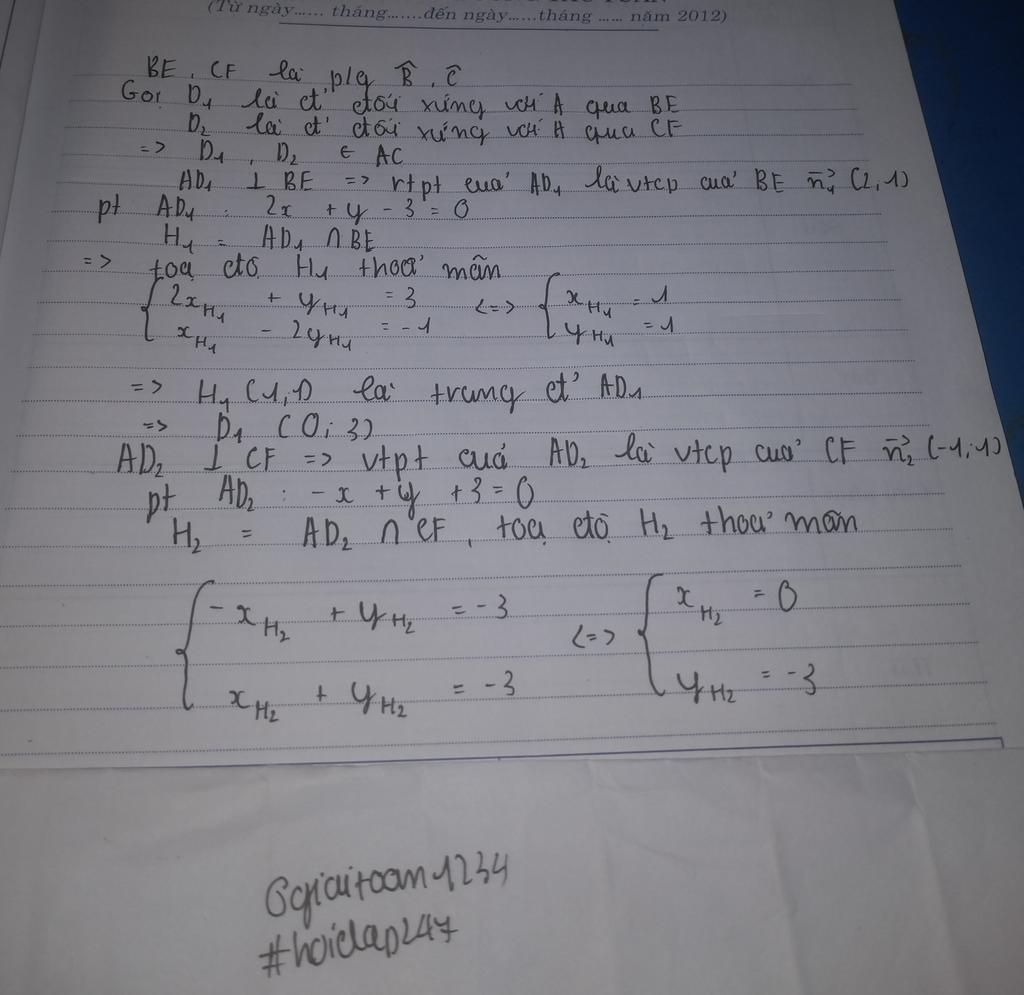 (Từ ngày...... tháng.......đến ngày......tháng ...... năm 2012)
BE, CF là p/g B̂, Ĉ
Gọi D₁ là đ' đối xứng với A qua BE
D₂ là đ' đối xứng với A qua CF
=> D₁, D₂ ∈ AC
AD₁ ⊥ BE => vtpt của AD₁ là vtcp của BE n⃗₁ (2,1)
pt AD₁ : 2x + y - 3 = 0
H₁ = AD₁ ∩ BE
=> toạ độ H₁ thoả mãn
{ 2x_H₁ + y_H₁ = 3 <=> { x_H₁ = 1
x_H₁ - 2y_H₁ = -1 y_H₁ = 1
=> H₁ (1,1) là trung đ' AD₁
=> D₁ (0; 3)
AD₂ ⊥ CF => vtpt của AD₂ là vtcp của CF n⃗₂ (-1;1)
pt AD₂ : -x + y + 3 = 0
H₂ = AD₂ ∩ CF, toạ độ H₂ thoả mãn
{ -x_H₂ + y_H₂ = -3 <=> { x_H₂ = 0
x_H₂ + y_H₂ = -3 y_H₂ = -3
@giaitoan1234
#hoidap247